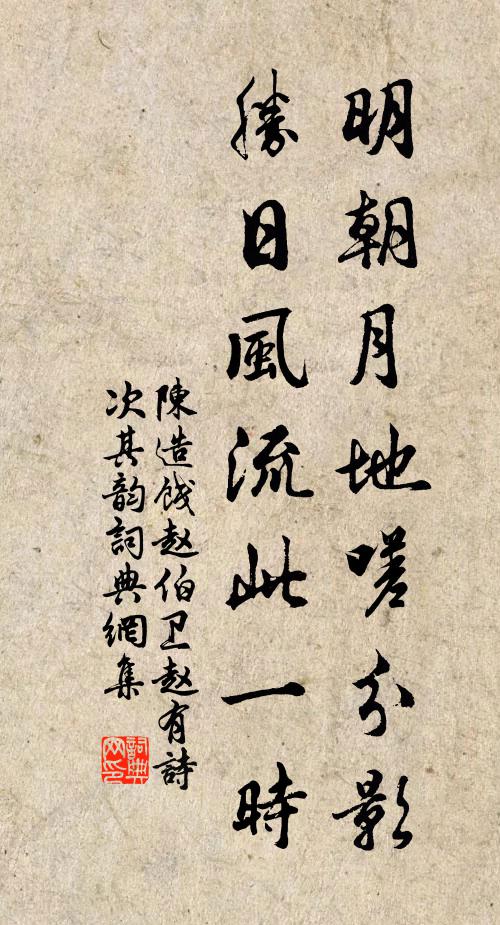 明朝月地嗟分影
勝日風流此一時
陳造餞赵伯卫赵有詩
次其韵詞典網集
詞典
网印